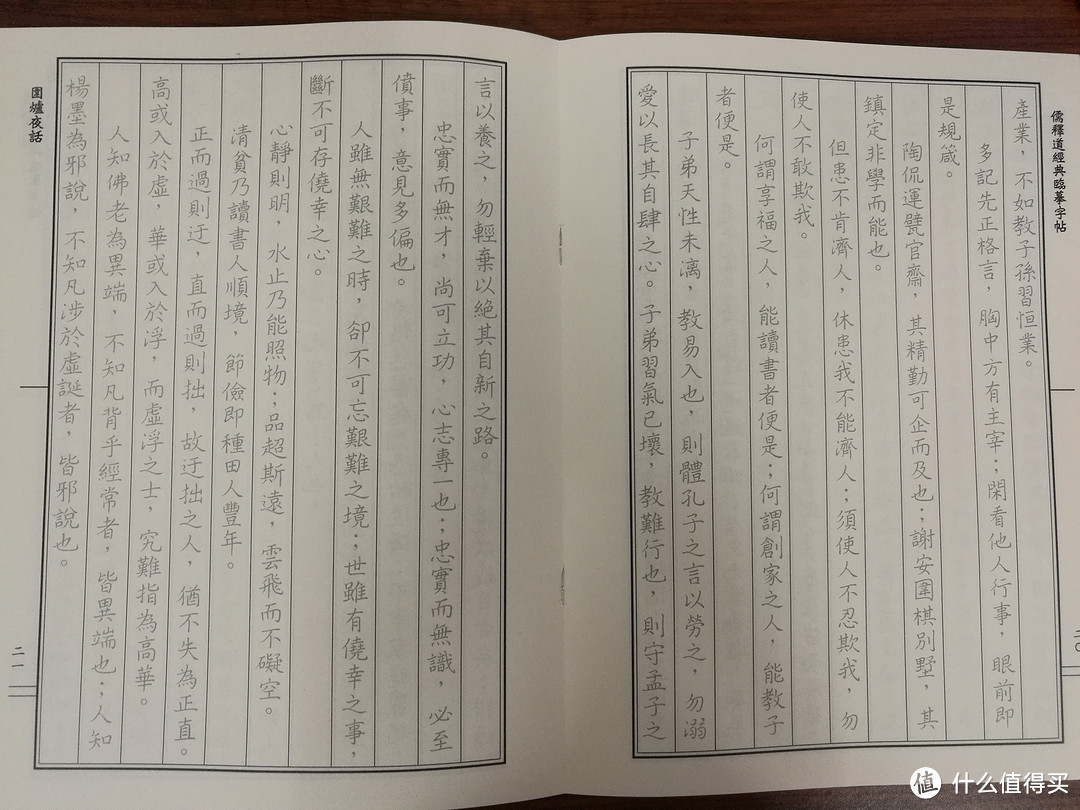 儒釋道經典臨摹字帖
二〇
產業，不如教子孫習恒業。
多記先正格言，胸中方有主宰；閑看他人行事，眼前即
是規箴。
陶侃運甓官齋，其精勤可企而及也；謝安圍棋別墅，其
鎮定非學而能也。
但患不肯濟人，休患我不能濟人；須使人不忍欺我，勿
使人不敢欺我。
何謂享福之人，能讀書者便是；何謂創家之人，能教子
者便是。
子弟天性未漓，教易入也，則體孔子之言以勞之，勿溺
愛以長其自肆之心。子弟習氣已壞，教難行也，則守孟子之
言以養之，勿輕棄以絕其自新之路。
忠實而無才，尚可立功，心志專一也；忠實而無識，必至
僨事，意見多偏也。
人雖無艱難之時，卻不可忘艱難之境；世雖有僥幸之事，
斷不可存僥幸之心。
心靜則明，水止乃能照物；品超斯遠，雲飛而不礙空。
清貧乃讀書人順境，節儉即種田人豐年。
正而過則迂，直而過則拙，故迂拙之人，猶不失為正直。
高或入於虛，華或入於浮，而虛浮之士，究難指為高華。
人知佛老為異端，不知凡背乎經常者，皆異端也；人知
楊墨為邪說，不知凡涉於虛誕者，皆邪說也。
圍爐夜話
二一
值 什么值得买